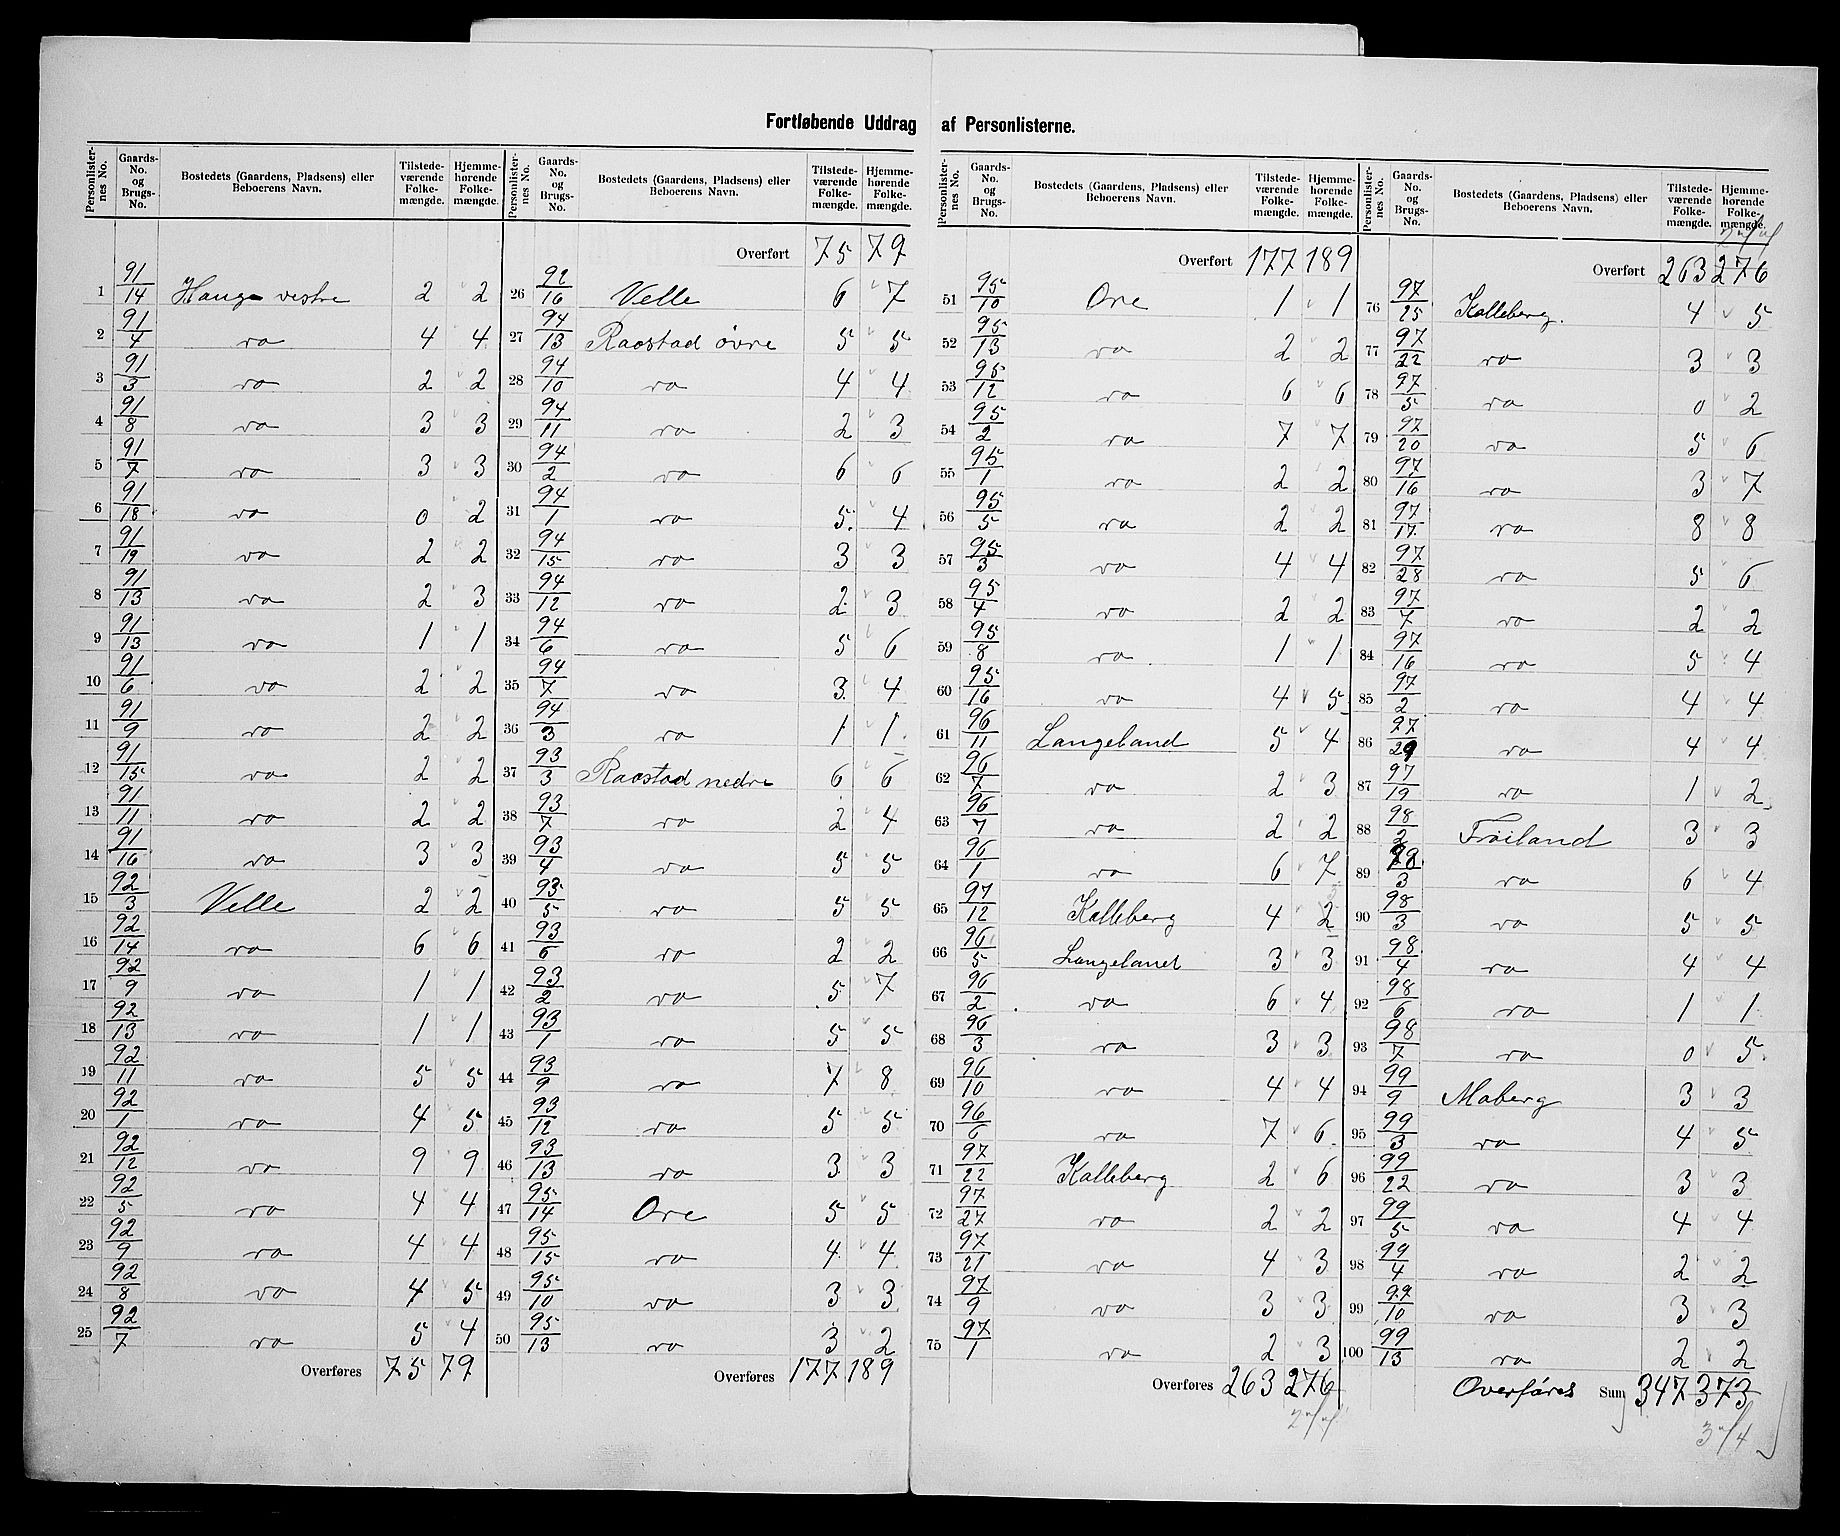 Fortløbende Uddrag af Personlisterne.
Personlister-nes No. | Gaards-No. og Brugs-No. | Bostedets (Gaardens, Pladsens) eller Beboerens Navn. | Tilstede-værende Folke-mængde. | Hjemme-hørende Folke-mængde.
1 91/14 Hauge vestre 2 2
2 91/4 do 4 4
3 91/3 do 2 2
4 91/8 do 3 3
5 91/7 do 3 3
6 91/18 do 0 2
7 91/19 do 2 2
8 91/13 do 2 3
9 91/13 do 1 1
10 91/6 do 2 2
11 91/9 do 2 2
12 91/15 do 2 2
13 91/11 do 2 2
14 91/16 do 3 3
15 92/3 Velle 2 2
16 92/14 do 6 6
17 92/9 do 1 1
18 92/13 do 1 1
19 92/11 do 5 5
20 92/1 do 4 5
21 92/12 do 9 9
22 92/5 do 4 4
23 92/9 do 4 4
24 92/8 do 4 5
25 92/7 do 5 4
Overføres 75 79
Personlister-nes No. | Gaards-No. og Brugs-No. | Bostedets (Gaardens, Pladsens) eller Beboerens Navn. | Tilstede-værende Folke-mængde. | Hjemme-hørende Folke-mængde.
Overført 75 79
26 92/16 Velle 6 7
27 94/13 Raostad øvre 5 5
28 94/10 do 4 4
29 94/11 do 2 3
30 94/2 do 6 6
31 94/1 do 5 4
32 94/15 do 3 3
33 94/12 do 2 3
34 94/6 do 5 6
35 94/7 do 3 4
36 94/3 do 1 1
37 93/3 Raostad nedre 6 6
38 93/7 do 2 4
39 93/4 do 5 5
40 93/5 do 5 5
41 93/6 do 2 2
42 93/2 do 5 7
43 93/1 do 5 5
44 93/9 do 7 8
45 93/12 do 5 5
46 93/13 do 3 3
47 95/14 Ore 5 5
48 95/15 do 4 4
49 95/10 do 3 3
50 95/13 do 3 2
Overføres 177 189
Personlister-nes No. | Gaards-No. og Brugs-No. | Bostedets (Gaardens, Pladsens) eller Beboerens Navn. | Tilstede-værende Folke-mængde. | Hjemme-hørende Folke-mængde.
Overført 177 189
51 95/10 Ore 1 1
52 95/13 do 2 2
53 95/12 do 6 6
54 95/2 do 7 7
55 95/1 do 2 2
56 95/5 do 2 2
57 95/3 do 4 4
58 95/4 do 2 2
59 95/8 do 1 1
60 95/16 do 4 5
61 96/11 Langeland 5 4
62 96/7 do 2 3
63 96/7 do 2 2
64 96/1 do 6 7
65 97/12 Kalleberg 4 2
66 96/5 Langeland 3 3
67 96/2 do 6 4
68 96/3 do 3 3
69 96/10 do 4 4
70 96/6 do 7 6
71 97/22 Kalleberg 2 6
72 97/27 do 2 2
73 97/21 do 4 3
74 97/9 do 3 3
75 97/1 do 2 3
Overføres 263 276
Personlister-nes No. | Gaards-No. og Brugs-No. | Bostedets (Gaardens, Pladsens) eller Beboerens Navn. | Tilstede-værende Folke-mængde. | Hjemme-hørende Folke-mængde.
Overført 263 276
76 97/25 Kalleberg. 4 5
77 97/22 do 3 3
78 97/5 do 0 2
79 97/20 do 5 6
80 97/16 do 3 7
81 97/17 do 8 8
82 97/28 do 5 6
83 97/7 do 2 2
84 97/16 do 5 4
85 97/2 do 4 4
86 97/29 do 4 4
87 97/19 do 1 2
88 98/2 Frøiland 3 3
89 98/3 do 6 4
90 98/3 do 5 5
91 98/4 do 4 4
92 98/6 do 1 1
93 98/7 do 0 5
94 99/9 Moberg 3 3
95 99/3 do 4 5
96 99/22 do 3 3
97 99/5 do 4 4
98 99/4 do 2 2
99 99/10 do 3 3
100 99/13 do 2 2
Overføres Sum 347 373